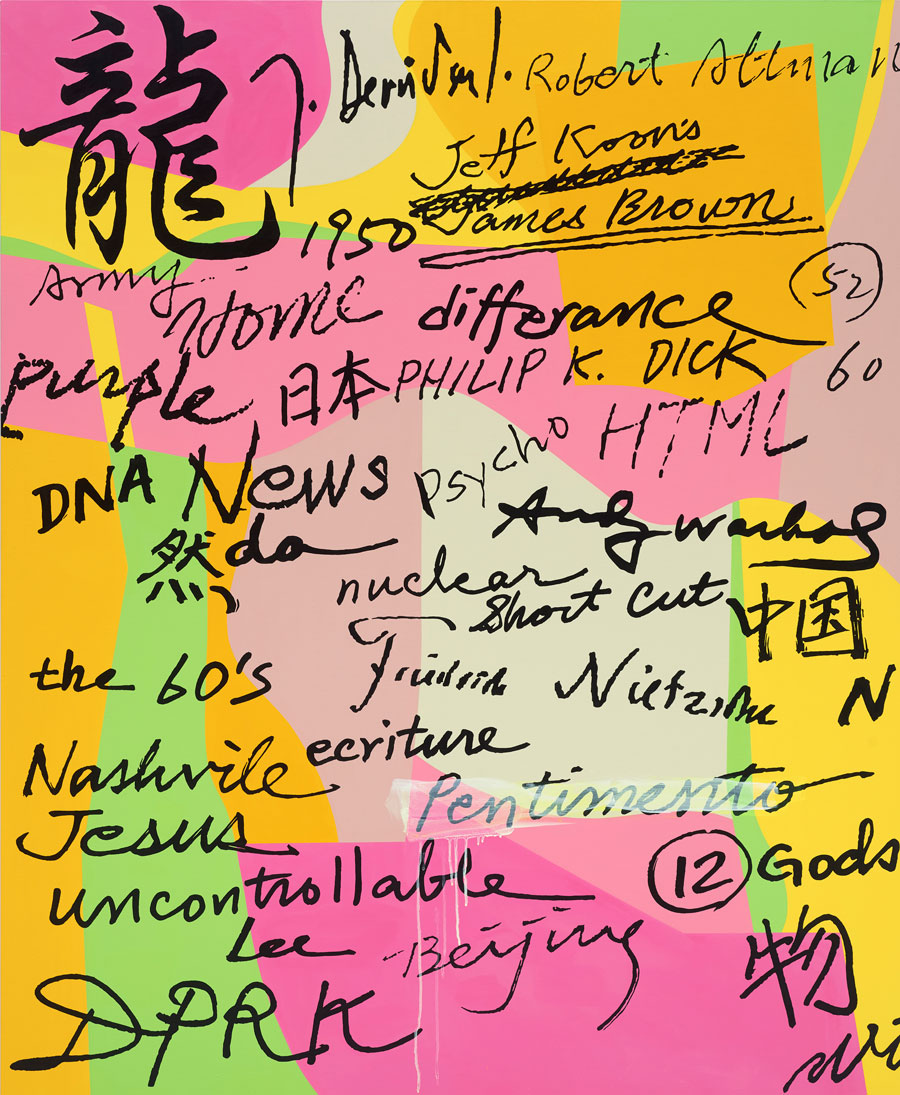 龍
Robert Altman
Jeff Koons
James Brown
1950
Army
Home differance 52
purple 日本 PHILIP K. DICK 60
psycho HTML
DNA News
Andy Warhol
然 da
nuclear
Short cut 中国
the 60's Friedrich Nietzsche N
Nashvile ecriture
Pentimento
Jesus
12 Gods
uncontrollable
Lee Beijing 物
DPRK